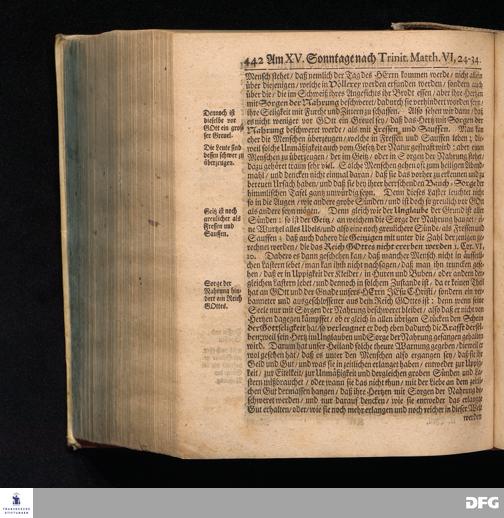 442 Am XV. Sonntage nach Trinit. Matth. VI, 24-34.
Mensch stehet / daß nemlich der Tag des HErrn kommen werde / nicht allein
über diejenigen / welche in Völlerey werden erfunden werden / sondern auch
über die / die im Schweiß ihres Angesichts ihr Brodt essen / aber ihre Hertzen
mit Sorgen der Nahrung beschweret / dadurch sie verhindert worden seyn /
ihre Seligkeit mit Furcht und Zittern zu schaffen. Also sehen wir dann / daß
es nicht weniger vor GOtt ein Greuel sey / daß das Hertz mit Sorgen der
Nahrung beschweret werde / als mit Fressen und Sauffen. Man kan
eher die Menschen überzeugen / welche in Fressen und Sauffen leben /
weil solche Unmäßigkeit auch vom Gesetz der Natur gestrafft wird: aber einen
Menschen zu überzeugen / der im Geitz / oder in Sorgen der Nahrung stehet /
dazu gehöret traun sehr viel. Solche Menschen gehen auch zum heiligen Abend-
mahl / und dencken nicht einmal daran / daß sie das vorher zu erkennen und zu
bereuen Ursach haben / und daß sie bey ihrer herrschenden Bauch-Sorge der
himmlischen Tafel gantz unwürdig seyn. Denn dieses Laster leuchtet nicht
so in die Augen / wie andere grobe Sünden / und ist doch so greulich vor GOtt
als andere seyn mögen. Denn gleich wie der Unglaube der Grund ist aller
Sünden: so ist der Geitz / an welchem die Sorge der Nahrung hanget / ei-
ne Wurtzel alles Ubels / und also eine noch greulichere Sünde / als Fressen und
Sauffen; daß auch dahero die Geitzigen mit unter die Zahl derjenigen ge-
rechnet werden / die das Reich GOttes nicht ererben werden 1. Cor. VI,
10. Dahero es dann geschehen kan / daß mancher Mensch nicht in äusserli-
chen Lastern lebet / man kan ihm nicht nachsagen / daß man ihn truncken gese-
hen / daß er in Uppigkeit der Kleider / in Huren und Buben / oder andern der-
gleichen Lastern lebet / und dennoch in solchem Zustande ist / da er keinen Theil
hat an GOtt und der Gnade unsers HErrn JEsu Christi / sondern ein ver-
banneter und ausgeschlossener aus dem Reich GOttes ist: denn wenn seine
Seele nur mit Sorgen der Nahrung beschweret bleibet / also daß er nicht von
Hertzen dagegen kämpffet / ob er gleich in allen übrigen Stücken den Schein
der Gottseligkeit hat / so verleugnet er doch eben dadurch die Krafft dersel-
ben; weil sein Hertz im Unglauben und Sorge der Nahrung gefangen gehalten
wird. Darum hat unser Heiland solche theure Warnung gegeben / dieweil er
wol gesehen hat / daß es unter den Menschen also ergangen sey / daß sie ihr
Geld und Gut / und was sie in zeitlichen erlanget haben / entweder zur Uppig-
keit / zur Eitelkeit / zur Unmäßigkeit und dergleichen groben Sünden und La-
stern mißbrauchet / oder wann sie das nicht thun / mit der Liebe an dem zeitli-
chen Gut dermassen hangen / daß ihre Hertzen mit Sorgen der Nahrung be-
schweret werden / und nur darauf dencken / wie sie entweder das erlangte
Gut erhalten / oder / wie sie noch mehr erlangen und noch reicher in dieser Welt
werden
Dennoch ist
dieselbe vor
GOtt ein gros-
ser Greuel.
Die Leute sind
dessen schwer zu
überzeugen.
Geitz ist noch
greulicher als
Fressen und
Sauffen.
Sorge der
Nahrung hin-
dert am Reich
GOttes.
FRANCKESCHE
STIFTUNGEN
DFG